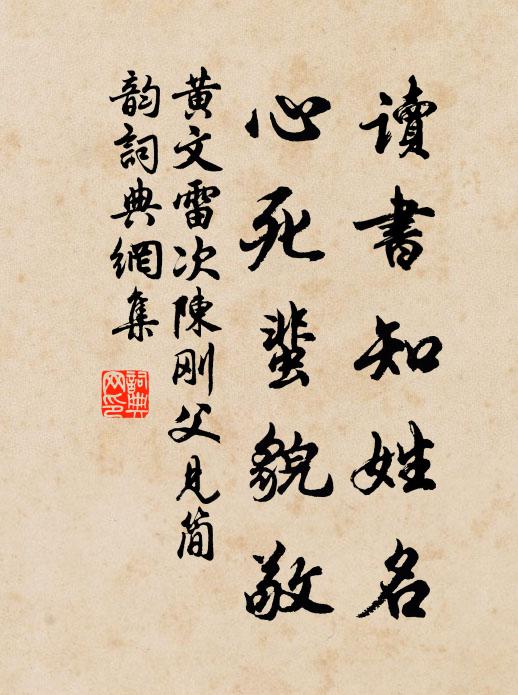 讀書知姓名
心死蜚貌敬
黃文雷次陳剛父見簡
韵詞典網集
詞典
网印